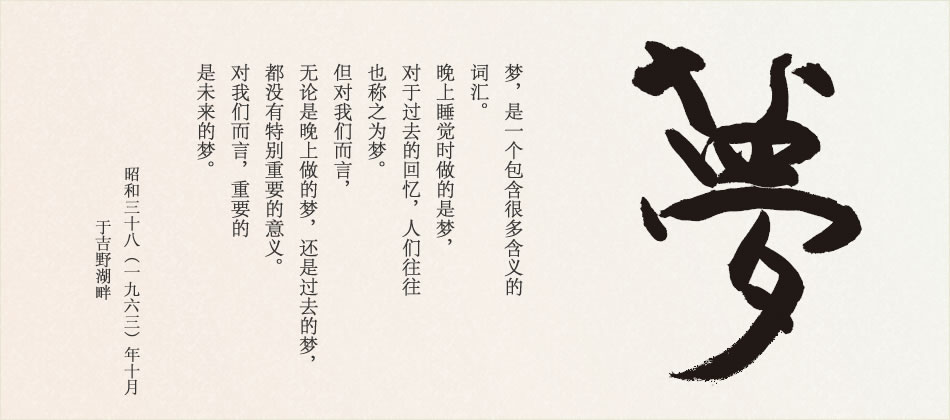 夢
梦，是一个包含很多含义的
词汇。
晚上睡觉时做的是梦，
对于过去的回忆，人们往往
也称之为梦。
但对我们而言，
无论是晚上做的梦，还是过去的梦，
都没有特别重要的意义。
对我们而言，重要的
是未来的梦。
昭和三十八（一九六三）年十月
于吉野湖畔